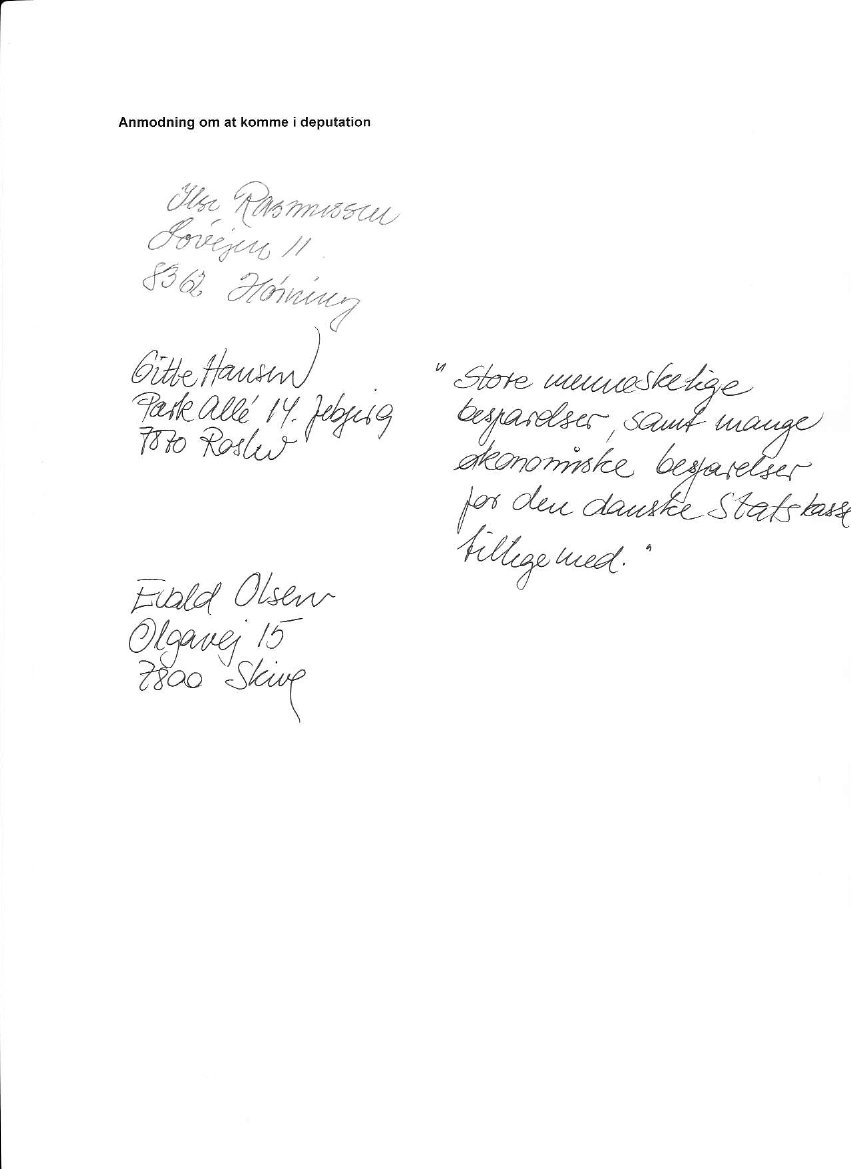 Anmodning om at komme i deputation
Ilse Rasmussen
Søvejen 11
8362 Hørning
Gitte Hansen
Park Allé 14. Jebjerg
7870 Roslev
"Store menneskelige
besparelser, samt mange
økonomiske besparelser
for den danske Statskasse
tillige med."
Evald Olsen
Olgavej 15
7800 Skive